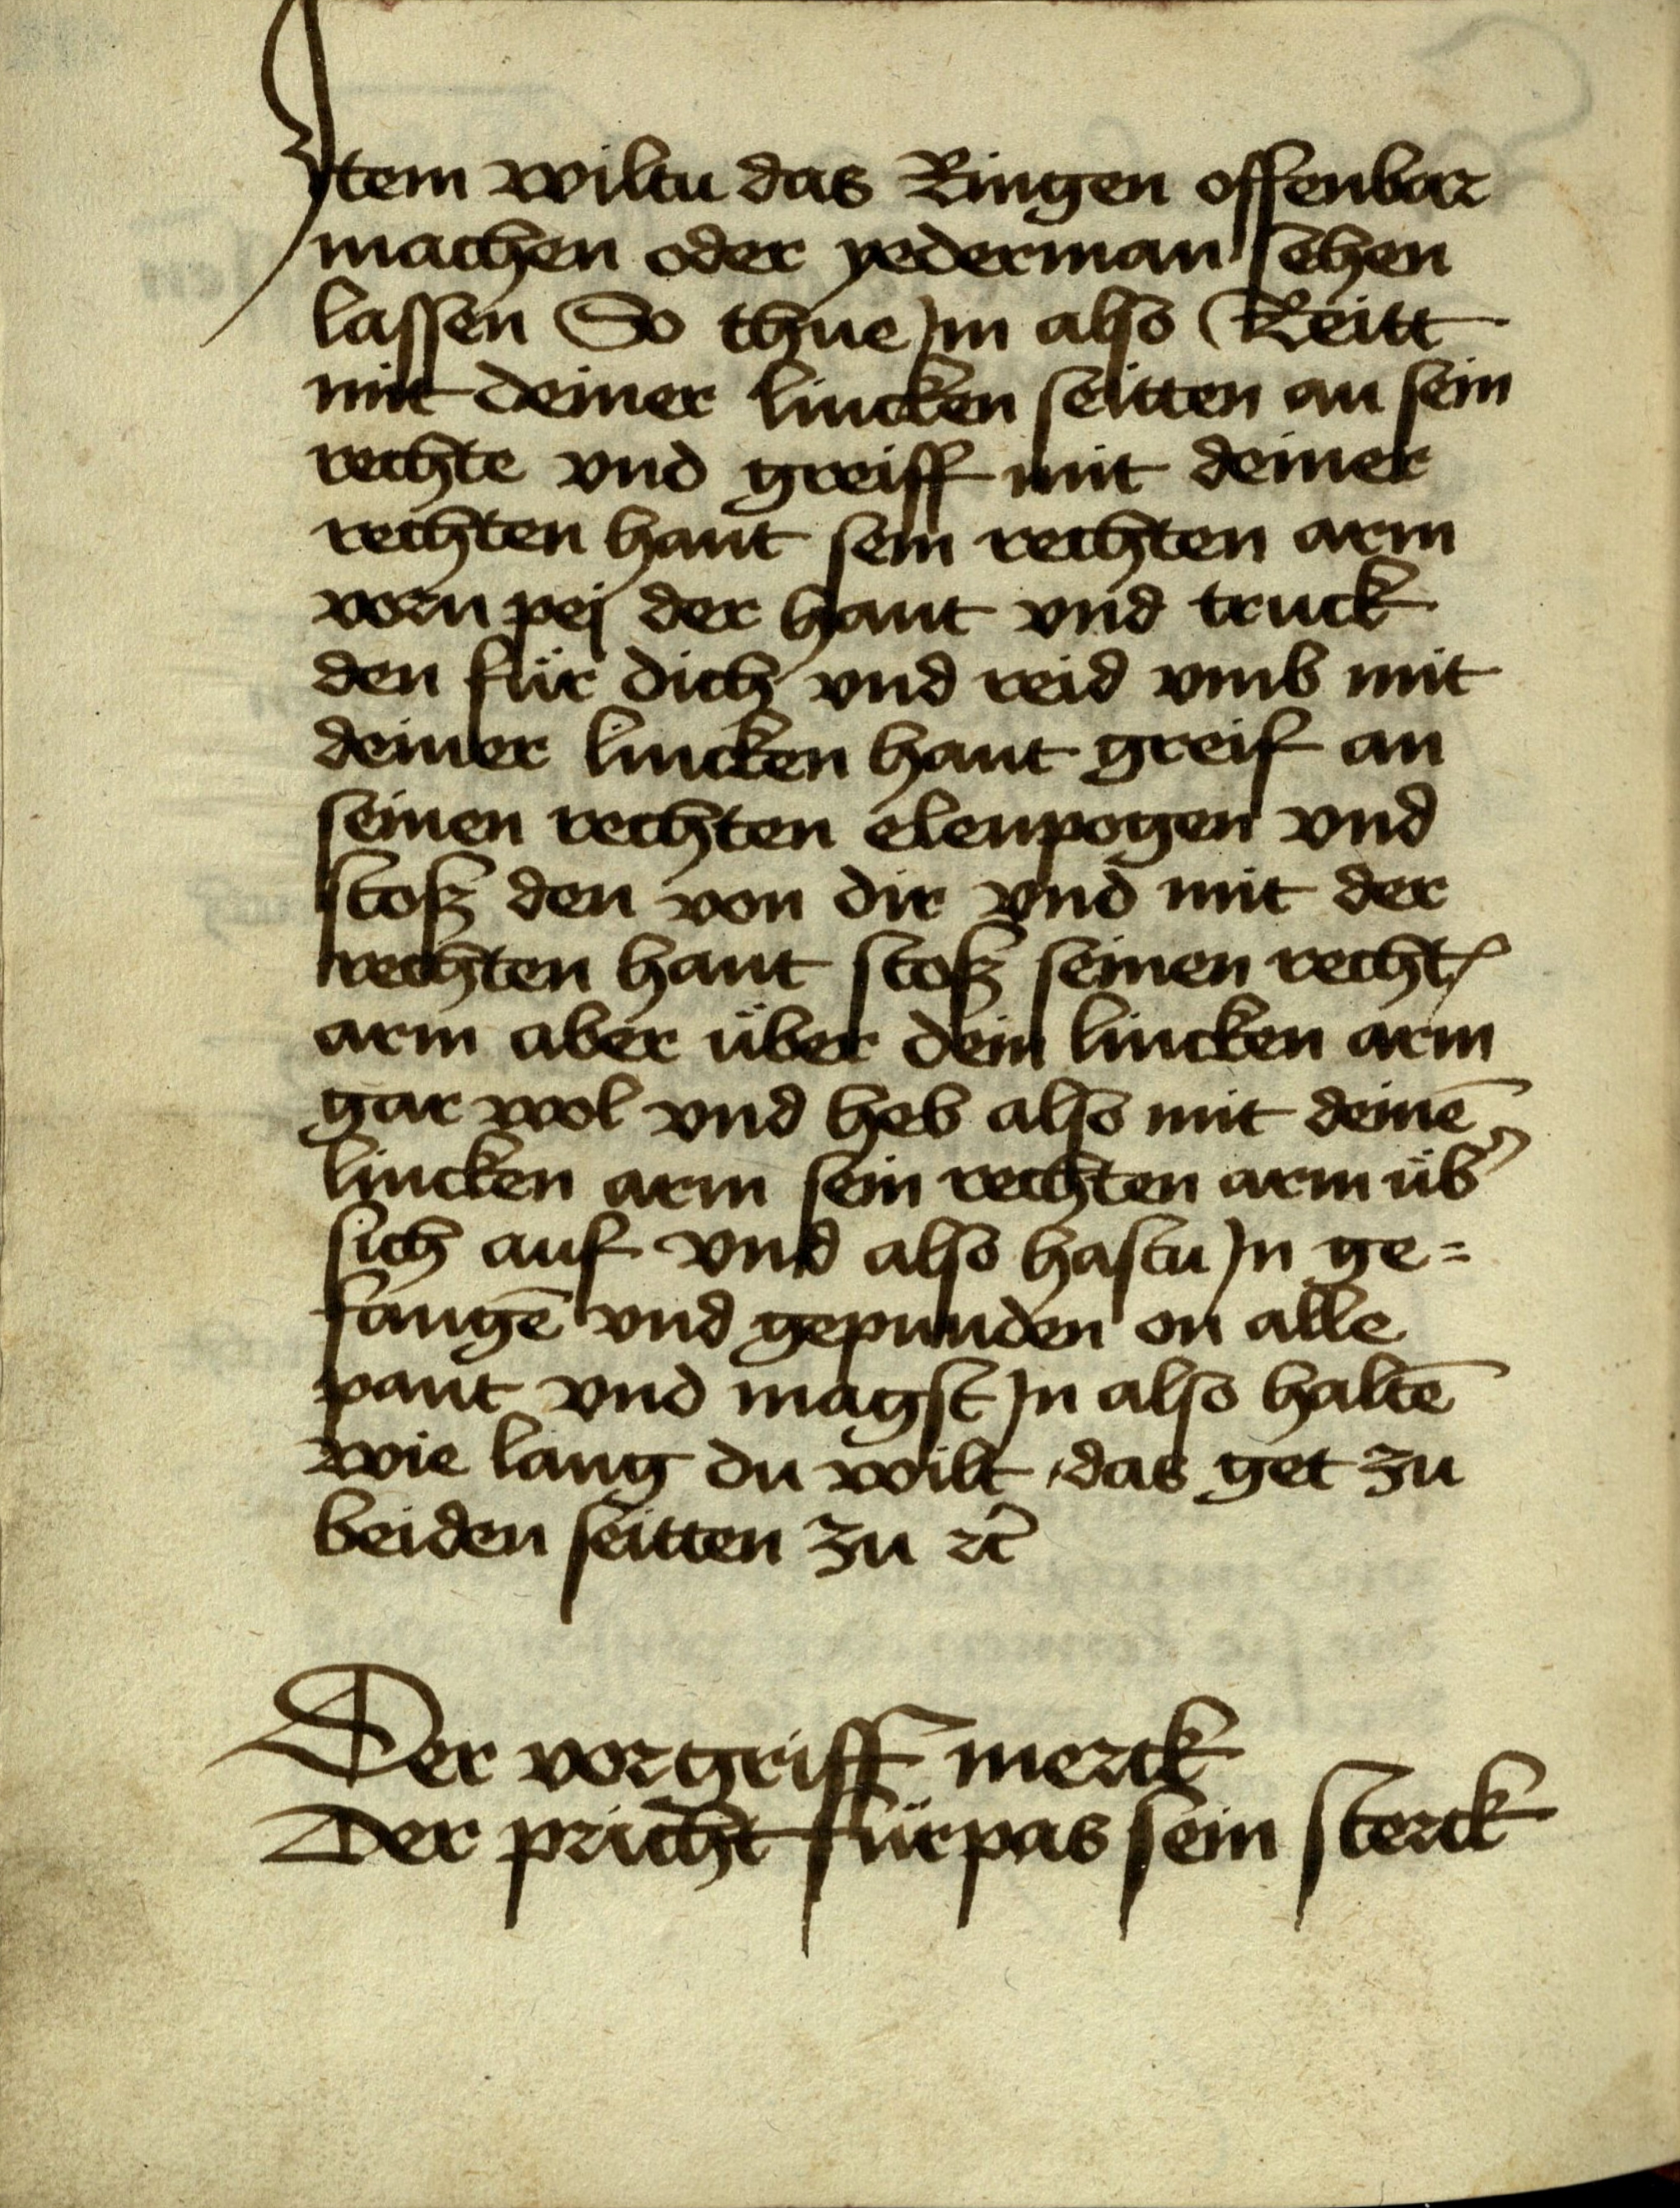 Jtem wiltu das Ringen offenbar
machen oder yederman sehen
lassen So thue Jm also Reitt
mit deiner lincken seitten an sein
rechte vnd greiff mit deiner
rechten hant sein rechten arm
vorn pej der hant vnd truck
den für dich vnd reid vmb mit
deiner lincken hant greif an
seinen rechten elenpogen vnd
stosz den von dir vnd mit der
rechten hant stosz seinen recht̄
arm aber über dein lincken arm
gar wol vnd heb also mit deinē
lincken arm sein rechten arm üb̕
sich auf vnd also hastu Jn ge=
fangē vnd gepunden on alle
pant vnd magst Jn also haltē
wie lang du wilt das get zu
beiden seitten zu ꝛc̄
Der vorgriff merck
Der pricht fürpas sein sterck